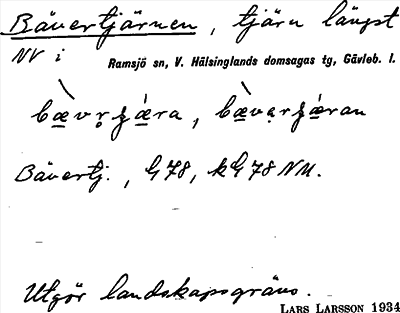 Bävertjärnen, tjärn längst
NV i Ramsjö sn, V. Hälsinglands domsagas tg, Gävleb. l.
Bävertj., G78, kG78 NU.
Utgör landskapsgräns.
LARS LARSSON 1934